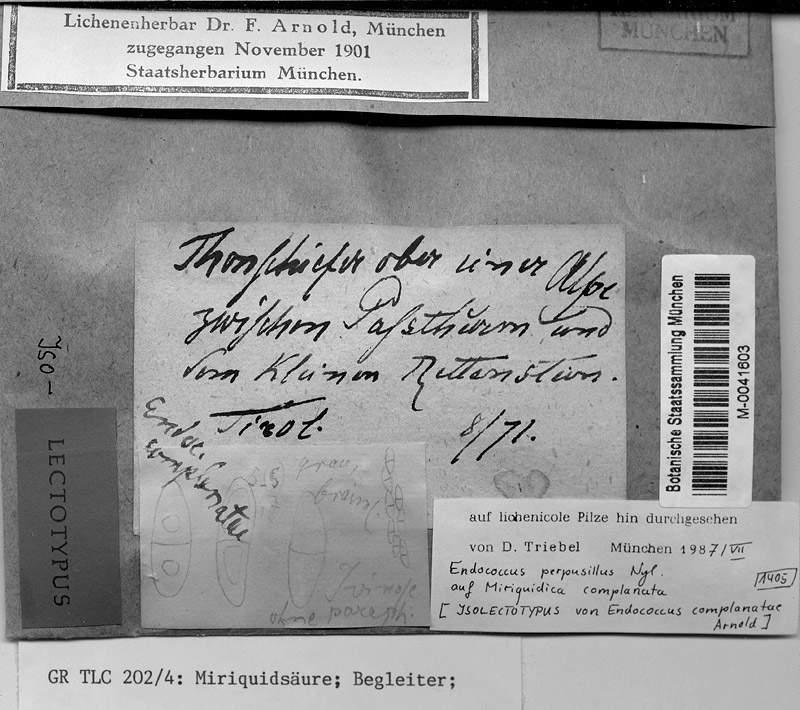 Lichenenherbar Dr. F. Arnold, München
zugegangen November 1901
Staatsherbarium München.
MÜNCHEN
Thonschiefer ober einer Alpe
zwischen Paßthurn und
dem kleinen Rettenstein.
Tirol. 8/71.
Iso-
LECTOTYPUS
Endoc.
complanatae
grau,
braun,
ohne paraph.
Botanische Staatssammlung München
M-0041603
auf lichenicole Pilze hin durchgesehen
von D. Triebel München 1987/VII
Endococcus perpusillus Nyl.
auf Miriquidica complanata
1405
[ISOLECTOTYPUS von Endococcus complanatae
Arnold]
GR TLC 202/4: Miriquidsäure; Begleiter;